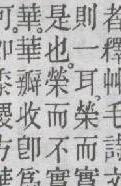 者釋艸毛詩
則一耳榮而實
是也。榮而不實
華。華瓣收卽爲
可卽黍稷方華